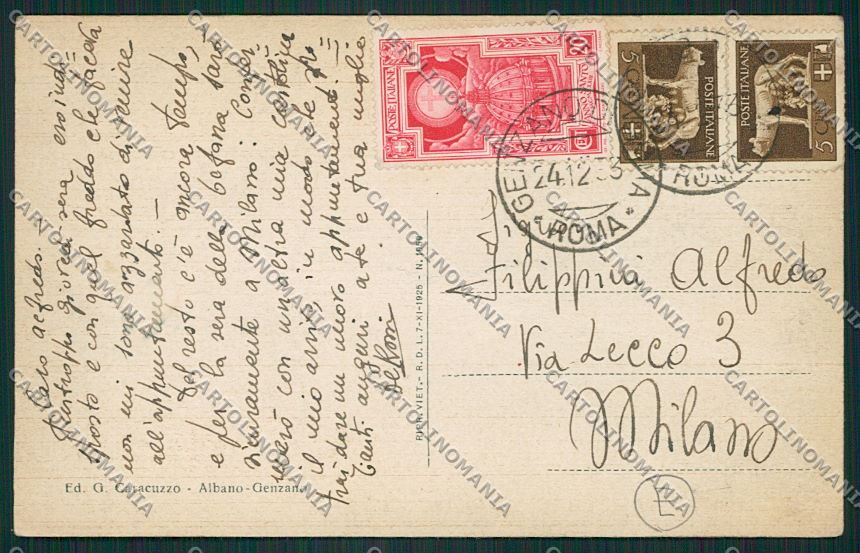 Caro Alfredo. —
purtroppo giovedì sera ero indi=
sposto e con quel freddo che faceva
non mi sono azzardato di venire
all'appuntamento. —
Del resto c'è ancora tempo,
e per la sera della befana sarò
sicuramente a Milano: Confer=
merò con un'altra mia cartolina
il mio arrivo, in modo che po=
trai dare un nuovo appuntamento. —
Tanti auguri a te e tua moglie
Ed. G. Caracuzzo - Albano-Genzano
RIPR. VIET. - R. D. L. 7-XI-1925 - N. 1950
POSTE ITALIANE
20
ANNO SANTO
5
POSTE ITALIANE
5
POSTE ITALIANE
GENZANO DI ROMA
24.12.33
* ROMA *
ROMA
Sig.
Filippini Alfredo
Via Lecco 3
Milano
E
CARTOLINOMANIA